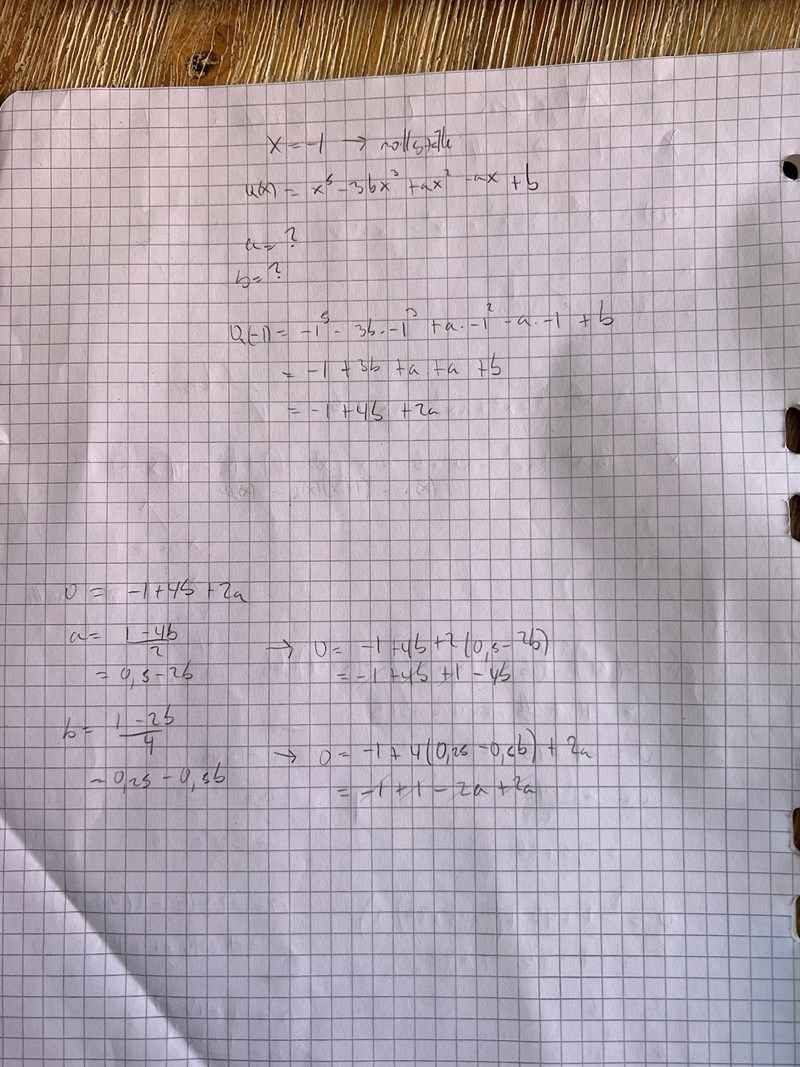 x = -1 → nullstelle
u(x) = x⁵ - 3bx³ + ax² - ax + b
a = ?
b = ?
u(-1) = -1⁵ - 3b · -1³ + a · -1² - a · -1 + b
= -1 + 3b + a + a + b
= -1 + 4b + 2a
0 = -1 + 4b + 2a
a = (1 - 4b)/2 → 0 = -1 + 4b + 2(0,5 - 2b)
= 0,5 - 2b = -1 + 4b + 1 - 4b
b = (1 - 2b)/4 → 0 = -1 + 4(0,25 - 0,5b) + 2a
= 0,25 - 0,5b = -1 + 1 - 2a + 2a